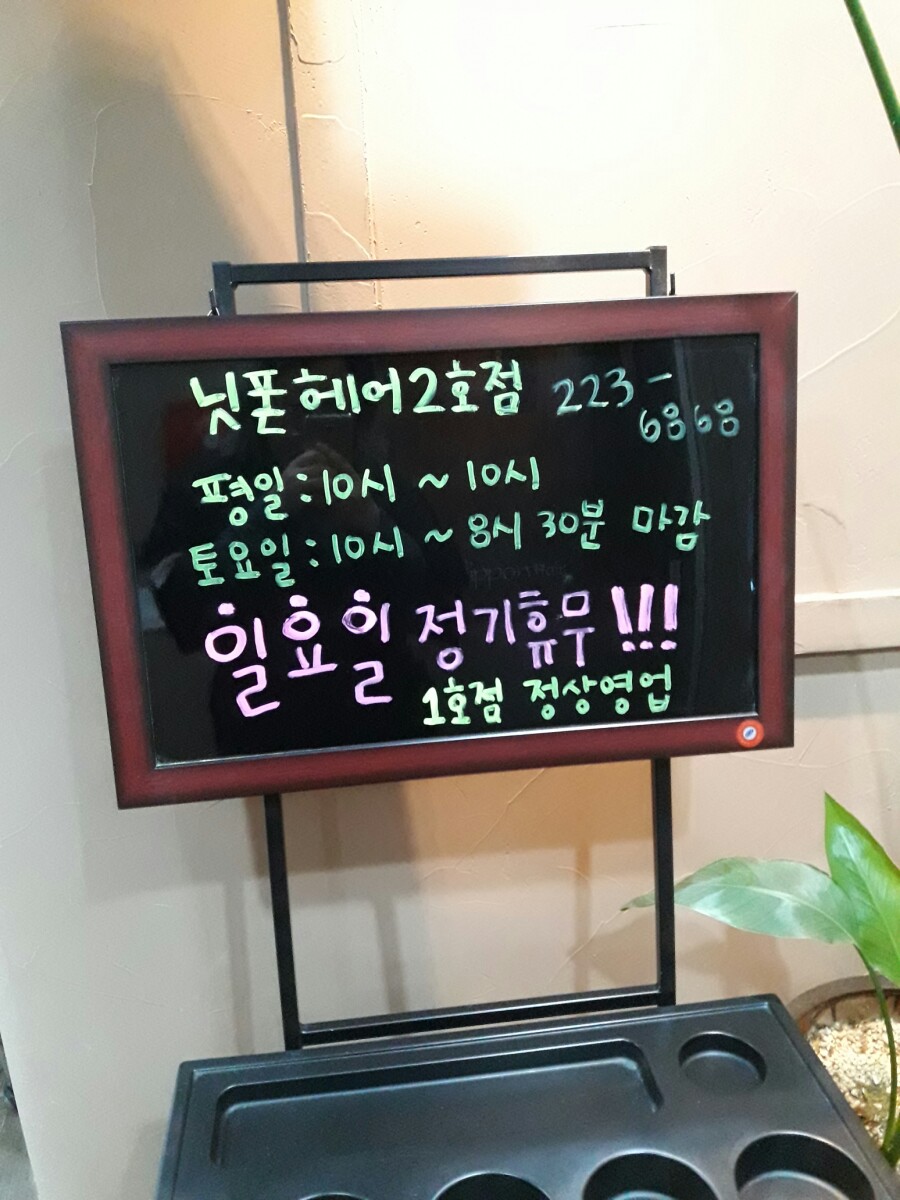 닛폰헤어2호점 223-6868
평일:10시 ~ 10시
토요일:10시 ~ 8시 30분 마감
일요일 정기휴무!!!
1호점 정상영업